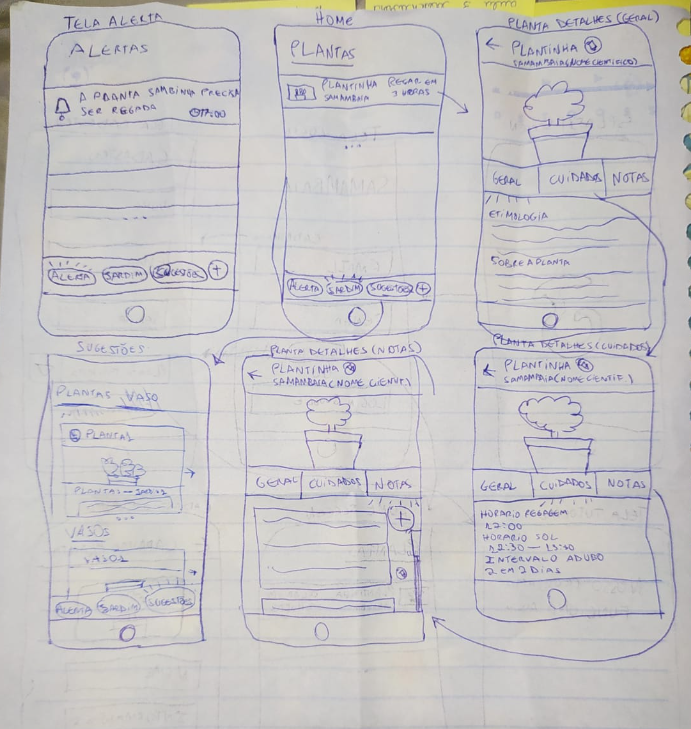 TELA ALERTA
ALERTAS
A PLANTA SAMBINHA PRECISA
SER REGADA 17:00
ALERTA JARDIM SUGESTÕES +
HOME
PLANTAS
PLANTINHA REGAR EM
SAMAMBAIA 2 HORAS
...
ALERTA JARDIM SUGESTÕES +
PLANTA DETALHES (GERAL)
← PLANTINHA
SAMAMBAIA (NOME CIENTIFICO)
GERAL CUIDADOS NOTAS
ETIMOLOGIA
SOBRE A PLANTA
SUGESTÕES
PLANTAS VASO
PLANTA1
PLANTAS
...
VASOS
VASO1
ALERTA JARDIM SUGESTÕES
PLANTA DETALHES (NOTAS)
← PLANTINHA
SAMAMBAIA (NOME CIENTIF.)
GERAL CUIDADOS NOTAS
+
PLANTA DETALHES (CUIDADOS)
← PLANTINHA
SAMAMBAIA (NOME CENTIF.)
GERAL CUIDADOS NOTAS
HORARIO REGAGEM
17:00
HORARIO SOL
12:30 — 13:30
INTERVALO ADUDO
2 EM 2 DIAS